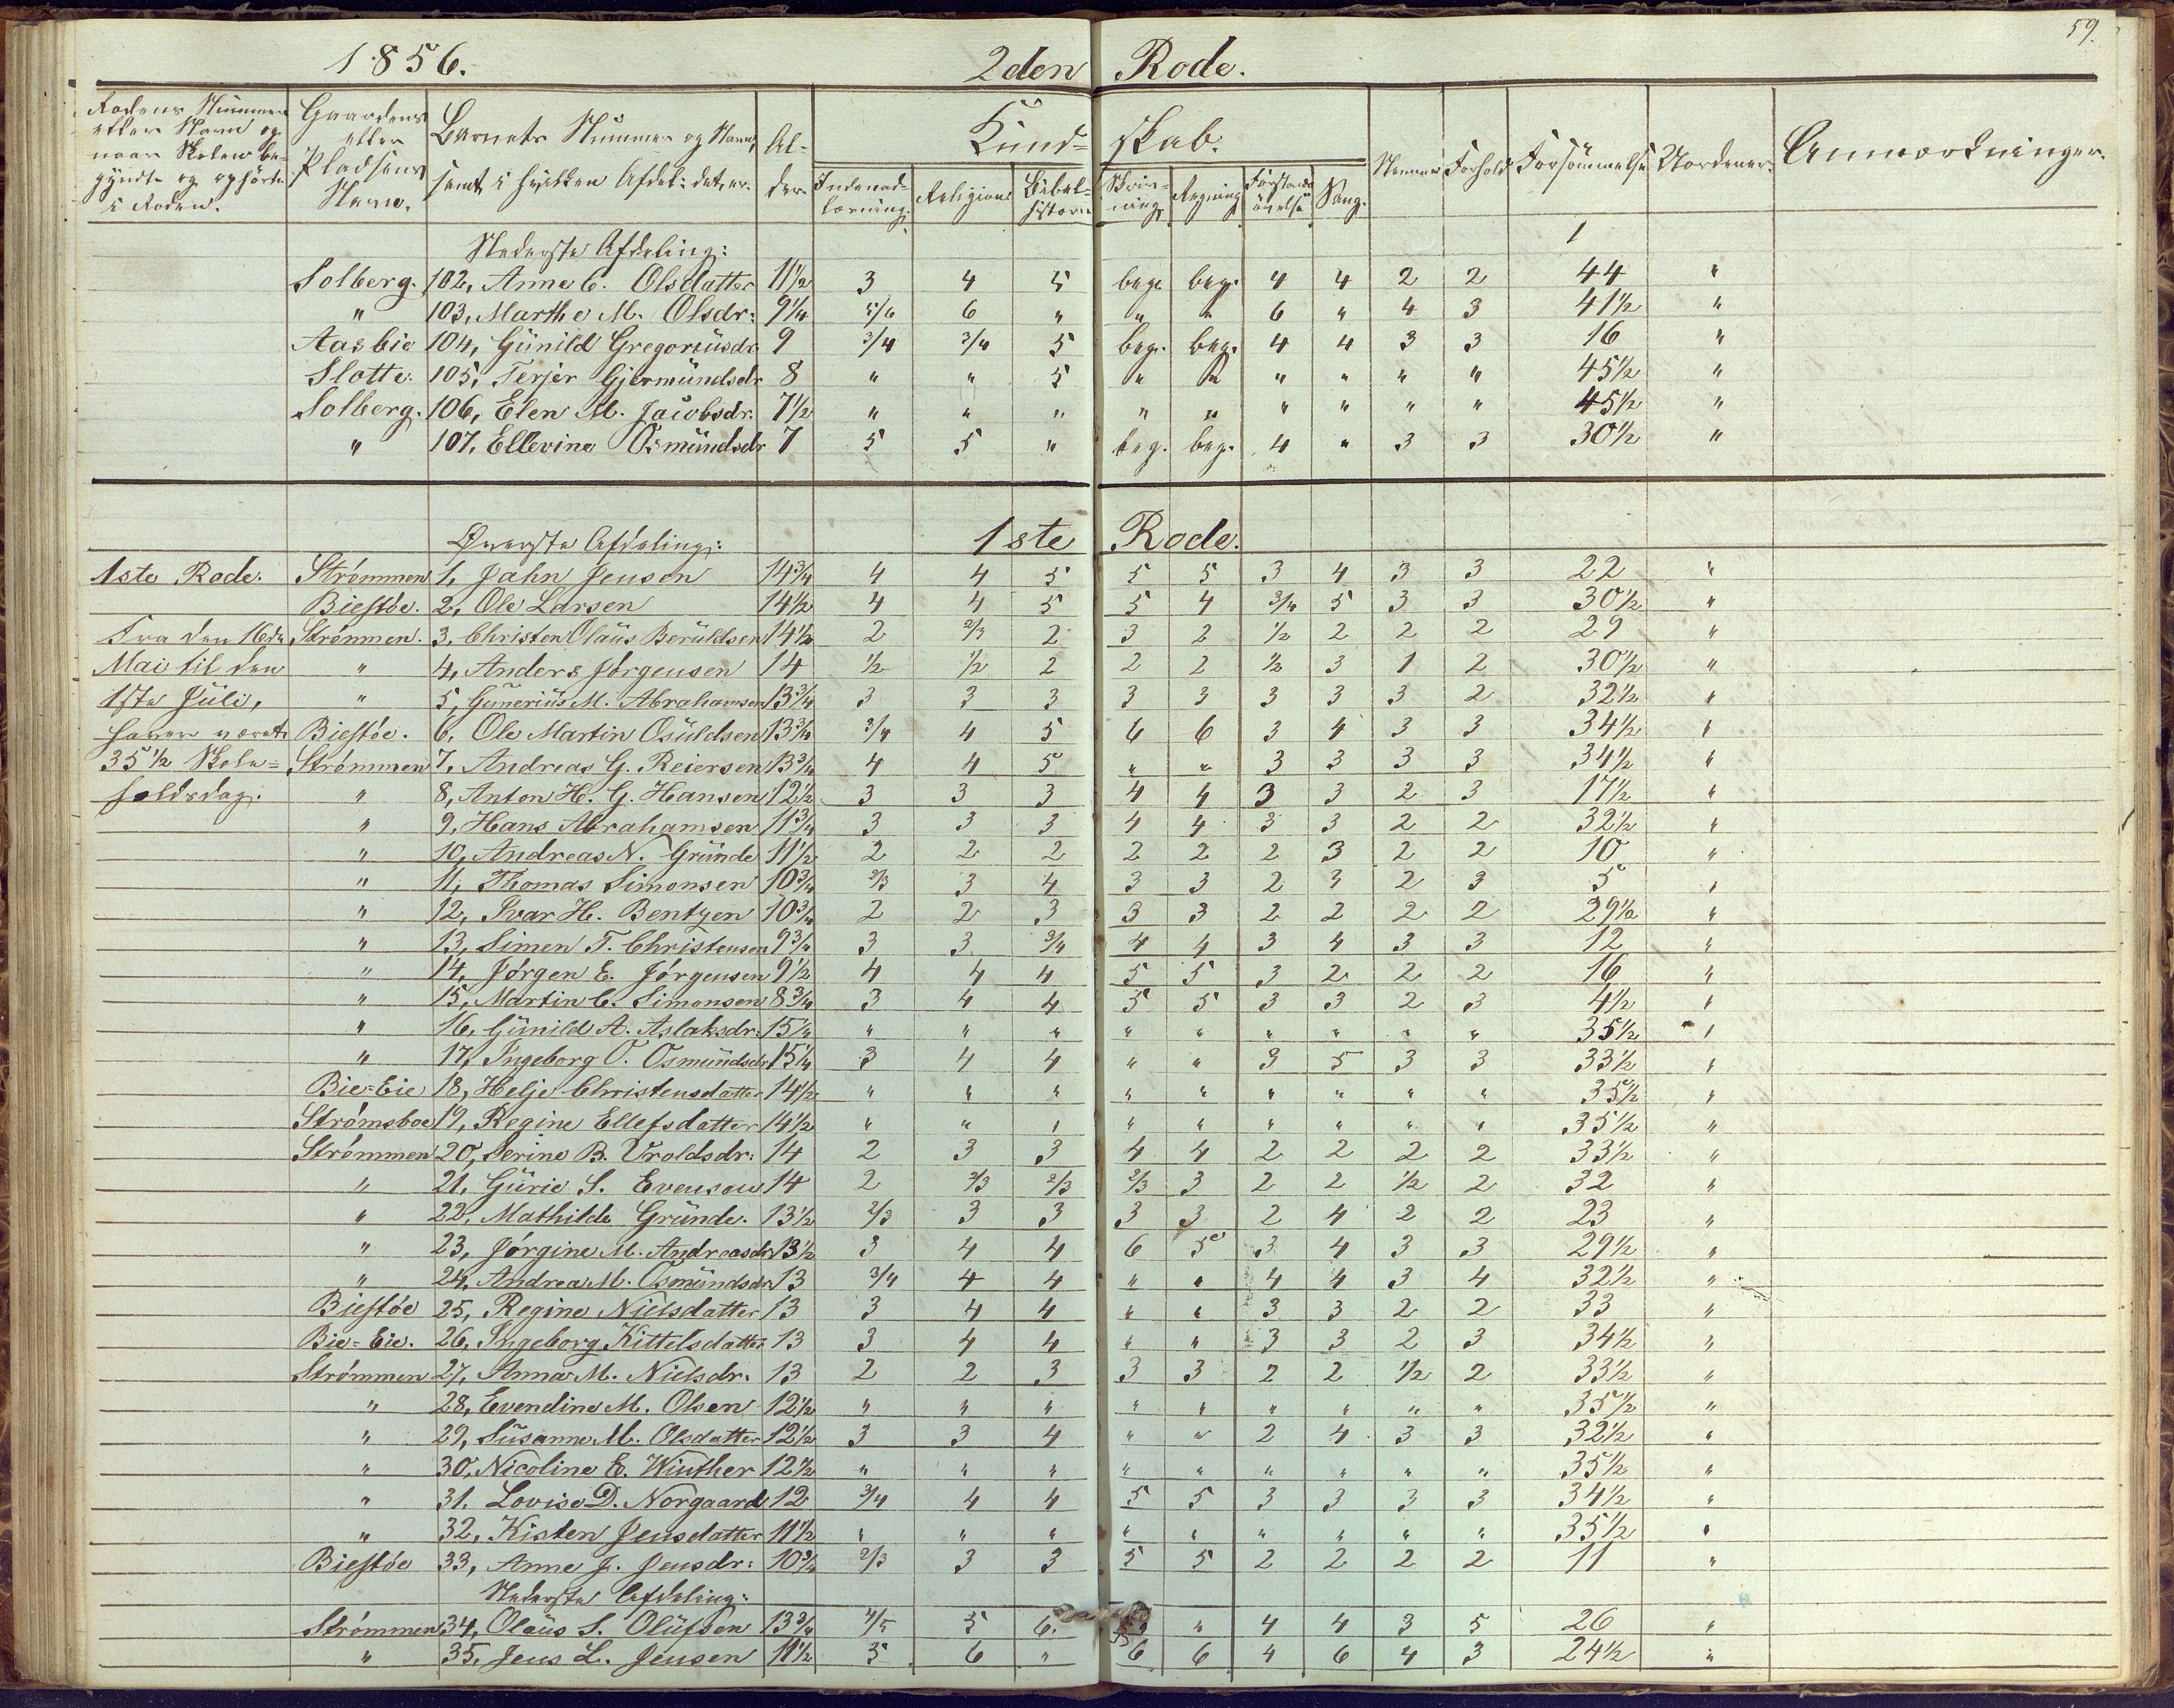 59.
1856. 2den Rode.
Rodens Nummer eller Navn og naar Skolen begyndte og ophørte i Roden. | Gaardens eller Pladsens Navn. | Barnets Nummer og Navn, samt i hvilken Afdel: det er. | Alder. | Kundskab. | Nemme | Forhold | Forsømmelse | Anmærkninger.
Indenadlæsning. | Religion | Bibelhistorie | Skrivning | Regning | Forstandsøvelse | Sang.
Nederste Afdeling: 1
Solberg. 102, Anne C. Olsdatter 11½ 3 4 5 beg. beg. 4 4 2 2 44 "
" 103, Marthe M. Olsdr: 9¼ 5/6 6 " " " 6 " 4 3 41½ "
Aasbie 104, Günild Gregoriüsdr 9 3/4 3/4 5 beg. beg. 4 4 3 3 16 "
Slotte. 105, Terjer Gjermündsdr 8 " " 5 " " " " " " 45½ "
Solberg. 106, Elen M. Jacobsdr. 7½ " " " " " " " " " 45½ "
" 107, Ellevine Osmündsdr 7 5 5 " beg. beg. 4 " 3 3 30½ "
1ste Rode.
Øverste Afdeling:
1ste Rode. Strømmen 1, Jahn Jensen 14¾ 4 4 5 5 5 3 4 3 3 22 "
Bieståe. 2, Ole Larsen 14½ 4 4 5 5 4 3/4 5 3 3 30½ "
Fra den 16de Strømmen. 3, Christen Olaüs Berüldsen 14½ 2 2/3 2 3 2 1/2 2 2 2 29 "
Mai til den " 4, Anders Jørgensen 14 1/2 1/2 2 2 2 1/2 3 1 2 30½ "
1ste Jüli, " 5, Günerius M. Abrahamsen 13¾ 3 3 3 3 3 3 3 3 2 32½ "
haver været Bieståe. 6, Ole Martin Osüldsen 13¾ 3/4 4 5 6 6 3 4 3 3 34½ "
35½ Skole= Strømmen 7, Andreas G. Reiersen 13¾ 4 4 5 " " 3 3 3 3 34½ "
holdsdag. " 8, Anton H. G. Hansen 12½ 3 3 3 4 4 3 3 2 3 17½ "
" 9, Hans Abrahamsen 11¾ 3 3 3 4 4 3 3 2 2 32½ "
" 10, Andreas N. Gründe 11½ 2 2 2 2 2 2 3 2 2 10 "
" 11, Thomas Simonsen 10¾ 2/3 3 4 3 3 2 3 2 3 5 "
" 12, Ivar H. Bentzen 10¾ 2 2 3 3 3 2 2 2 2 29½ "
" 13, Simen T. Christensen 9¾ 3 3 3/4 4 4 3 4 3 3 12 "
" 14, Jørgen E. Jørgensen 9½ 4 4 4 5 5 3 2 2 2 16 "
" 15, Martin C. Simonsen 8¾ 3 4 4 5 5 3 3 2 3 4½ "
" 16, Günild A. Aslaksdr: 15¼ " " " " " " " " " 35½ "
" 17, Ingeborg O. Osmündsdr 15¼ 3 4 4 " " 3 5 3 3 33½ "
Bie=Eie 18, Helje Christensdatter 14½ " " " " " " " " " 35½ "
Strømsboe 19, Regine Ellefsdatter 14½ " " " " " " " " " 35½ "
Strømmen 20, Serine B. Vroldsdr: 14 2 3 3 4 4 2 2 2 2 33½ "
" 21, Gürie S. Evensen 14 2 2/3 2/3 2/3 3 2 2 1/2 2 32 "
" 22, Mathilde Gründe. 13½ 2/3 3 3 3 3 2 4 2 2 23 "
" 23, Jørgine M. Andreasdr 13½ 3 4 4 6 5 3 4 3 3 29½ "
" 24, Andrea M. Osmündsdr 13 3/4 4 4 " " 4 4 3 4 32½ "
Bieståe 25, Regine Nielsdatter 13 3 4 4 " " 3 3 2 2 33 "
Bie=Eie. 26, Ingeborg Kittelsdatter 13 3 4 4 " " 3 3 2 3 34½ "
Strømmen 27, Anna M. Nielsdr. 13 2 2 3 3 3 2 2 1/2 2 33½ "
" 28, Evendine M. Olsen 12½ " " " " " " " " " 35½ "
" 29, Süsanne M. Olsdatter 12½ 3 3 4 " " 2 4 3 3 32½ "
" 30, Nicoline E. Winther 12½ " " " " " " " " " 35½ "
" 31. Lovise D. Norgaard 12 3/4 4 4 5 5 3 3 3 3 34½ "
" 32, Kisten Jensdatter 11½ " " " " " " " " " 35½ "
Bieståe 33, Anne J. Jensdr: 10¾ 2/3 3 3 5 5 2 2 2 2 11 "
Nederste Afdeling:
Strømmen 34, Olaüs S. Olüfsen 13¾ 4/5 5 6. " 4 4 3 5 26 "
" 35, Jens L. Jensen 11½ 5 6 " 6 6 4 6 4 3 24½ "